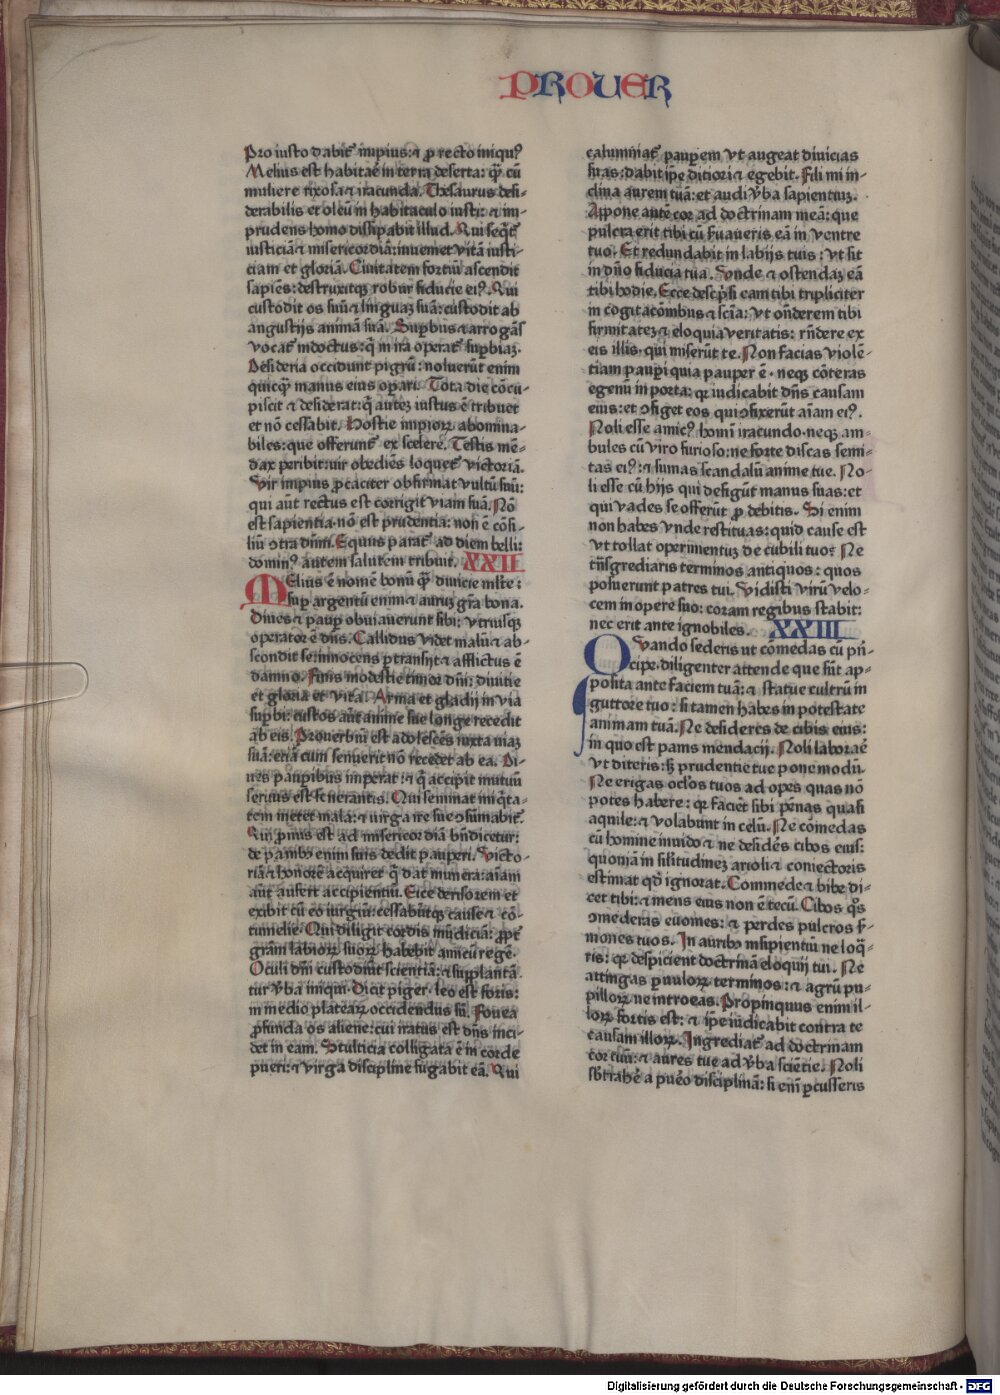 PROUER
Pro iusto dabit᷑ impius: ⁊ ꝓ recto iniquꝰ
Melius est habitaē in terra deserta: qᷓ cū
muliere rixosa ⁊ iracunda. Thesaurus desi-
derabilis et oleū in habitaculo iusti: ⁊ im-
prudens homo dissipabit illud. Qui seqt᷑
iusticiā ⁊ misericordiā: inueniet vitā iusti-
ciam et gloriā. Ciuitatem fortiū ascendit
sapiēs: destruxitqꝫ robur fiducie eiꝰ. Qui
custodit os suū ⁊ linguaꝫ suā: custodit ab
angustijs animā suā. Suꝑbus ⁊ arrogās
vocat᷑ indoctus: q̄ in ira operat᷑ suꝑbiaꝫ.
Desideria occidunt pigrū: noluerūt enim
quicqᷓ manus eius oꝑari. Tota die cōcu-
piscit ⁊ desiderat: q̄ auteꝫ iustus ē tribuet
et nō cessabit. Hostie impioꝝ abomina-
biles: que offerunt᷑ ex scelere. Testis mē-
dax peribit: vir obediēs loquet᷑ victoriā.
Vir impius ꝓcaciter obfirmat vultū suū:
qui aūt rectus est corrigit viam suā. Nō
est sapientia nō est prudentia: non ē cōsi-
liū ↄtra dn̄m. Equus parat᷑ ad diem belli:
dominꝰ autem salutem tribuit. XXII
Melius ē nomē bonū qᷓ diuicie ml̄te:
suꝑ argentū enim ⁊ auruꝫ gr̄a bona.
Diues ⁊ pauꝑ obuiauerunt sibi: vtriusqꝫ
operator ē dn̄s. Callidus videt malū ⁊ ab-
scondit se: innocens ꝑtransijt ⁊ afflictus ē
damno. Finis modestie timor dn̄i: diuitie
et gloria et vita. Arma et gladij in via
suꝑbi: custos aūt anime sue longe recedit
ab eis. Prouerbiū est adolescēs iuxta viaꝫ
suā: etiā cum senuerit nō recedet ab ea. Di-
ues pauꝑibus imperat: ⁊ q̄ accipit mutuū
seruus est fenerantis. Qui seminat iniqͥta-
tem metet mala: ⁊ virga ire sue ↄsumabit᷑.
Qui ꝓnus est ad misericordiā bn̄dicetur:
de panibꝰ enim suis dedit pauperi. Victo-
riā ⁊ honorē acquiret q̄ dat munera: aīam
aūt aufert accipientiū. Eice derisorem et
exibit cū eo iurgiū: cessabūtqꝫ cause ⁊ cō-
tumelie. Qui diligit cordis mūdiciā: ꝓpt᷑
gr̄am labioꝝ suoꝝ habebit amicū regē.
Oculi dn̄i custodiūt scientiā: ⁊ supplantā-
tur v̄ba iniqui. Dicit piger: leo est foris:
in medio plateaꝝ occidendus sū. Fouea
ꝓfunda os aliene: cui iratus est dn̄s inci-
det in eam. Stulticia colligata ē in corde
pueri: ⁊ virga discipline fugabit eā. Qui
calumniat᷑ pauꝑem vt augeat diuicias
suas: dabit ip̄e ditiori ⁊ egebit. Fili mi in-
clina aurem tuā: et audi v̄ba sapientuꝫ.
Appone aute cor ad doctrinam meā: que
pulcra erit tibi cū ẜuaueris eā in ventre
tuo. Et redundabit in labijs tuis: vt sit
in dn̄o fiducia tua. Vnde ⁊ ostendaꝫ eā
tibi hodie. Ecce descp̄si eam tibi tripliciter
in cogitatōnibus ⁊ scīa: vt on̄derem tibi
firmitateꝫ ⁊ eloquia veritatis: rn̄dere ex
eis illis, qui miserūt te. Non facias violē-
tiam pauꝑi quia pauper ē. neqꝫ cōteras
egenū in porta: qꝛ iudicabit dn̄s causam
eius: et ↄfiget eos qui ↄfixerūt aīam eiꝰ.
Noli esse amicꝰ homī iracundo. neqꝫ am-
bules cū viro furioso: ne forte discas semi-
tas eiꝰ: ⁊ sumas scandalū anime tue. No-
li esse cū hijs qui defigūt manus suas: et
qui vades se offerūt ꝓ debitis. Si enim
non habes vnde restituas: quid cause est
vt tollat operimentuꝫ de cubili tuo? Ne
tn̄sgrediaris terminos antiquos: quos
posuerunt patres tui. Vidisti virū velo-
cem in opere suo: coram regibus stabit:
nec erit ante ignobiles. XXIII
Quando sederis ut cōmedas cū pn̄-
cipe. diligenter attende que sūt ap-
posita ante faciem tuā: ⁊ statue cultrū in
gutture tuo: si tamen habes in potestate
animam tuā. Ne desideres de cibis eius:
in quo est panis mendacij. Noli laboraē
vt diteris: ẜ prudentie tue pone modū.
Ne erigas ocl̄os tuos ad opes quas nō
potes habere: qꝛ faciēt sibi pēnas quasi
aquile: ⁊ volabunt in celū. Ne cōmedas
cū homine inuido ⁊ ne desideres cibos eius:
quoniā in silitudineꝫ arioli ⁊ coniectoris
estimat qd̄ ignorat. Commede ⁊ bibe di-
cet tibi: ⁊ mens eius non ē tecū. Cibos qͦs
ↄmederas euomes: ⁊ perdes pulcros ẜ-
mones tuos. In auribꝰ insipientiū ne loqͣ-
ris: qꝛ despicient doctrinā eloquij tui. Ne
attingas ꝑuuloꝝ terminos: ⁊ agrū pu-
pilloꝝ ne introeas. Propinquus enim il-
loꝝ fortis est: ⁊ ip̄e iudicabit contra te
causam illoꝝ. Ingrediat᷑ ad doctrinam
cor tuū: ⁊ aures tue ad v̄ba sciētie. Noli
sb̄trahē a pūo disciplinā: si em̄ ꝑcusseris
Digitalisierung gefördert durch die Deutsche Forschungsgemeinschaft - DFG